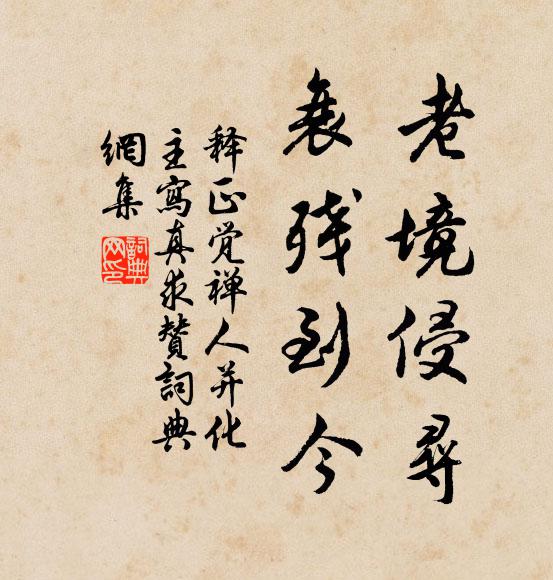 老境侵尋
衰残到今
释正觉禅人并化
主寫真求賛詞典
網集
詞典
网印